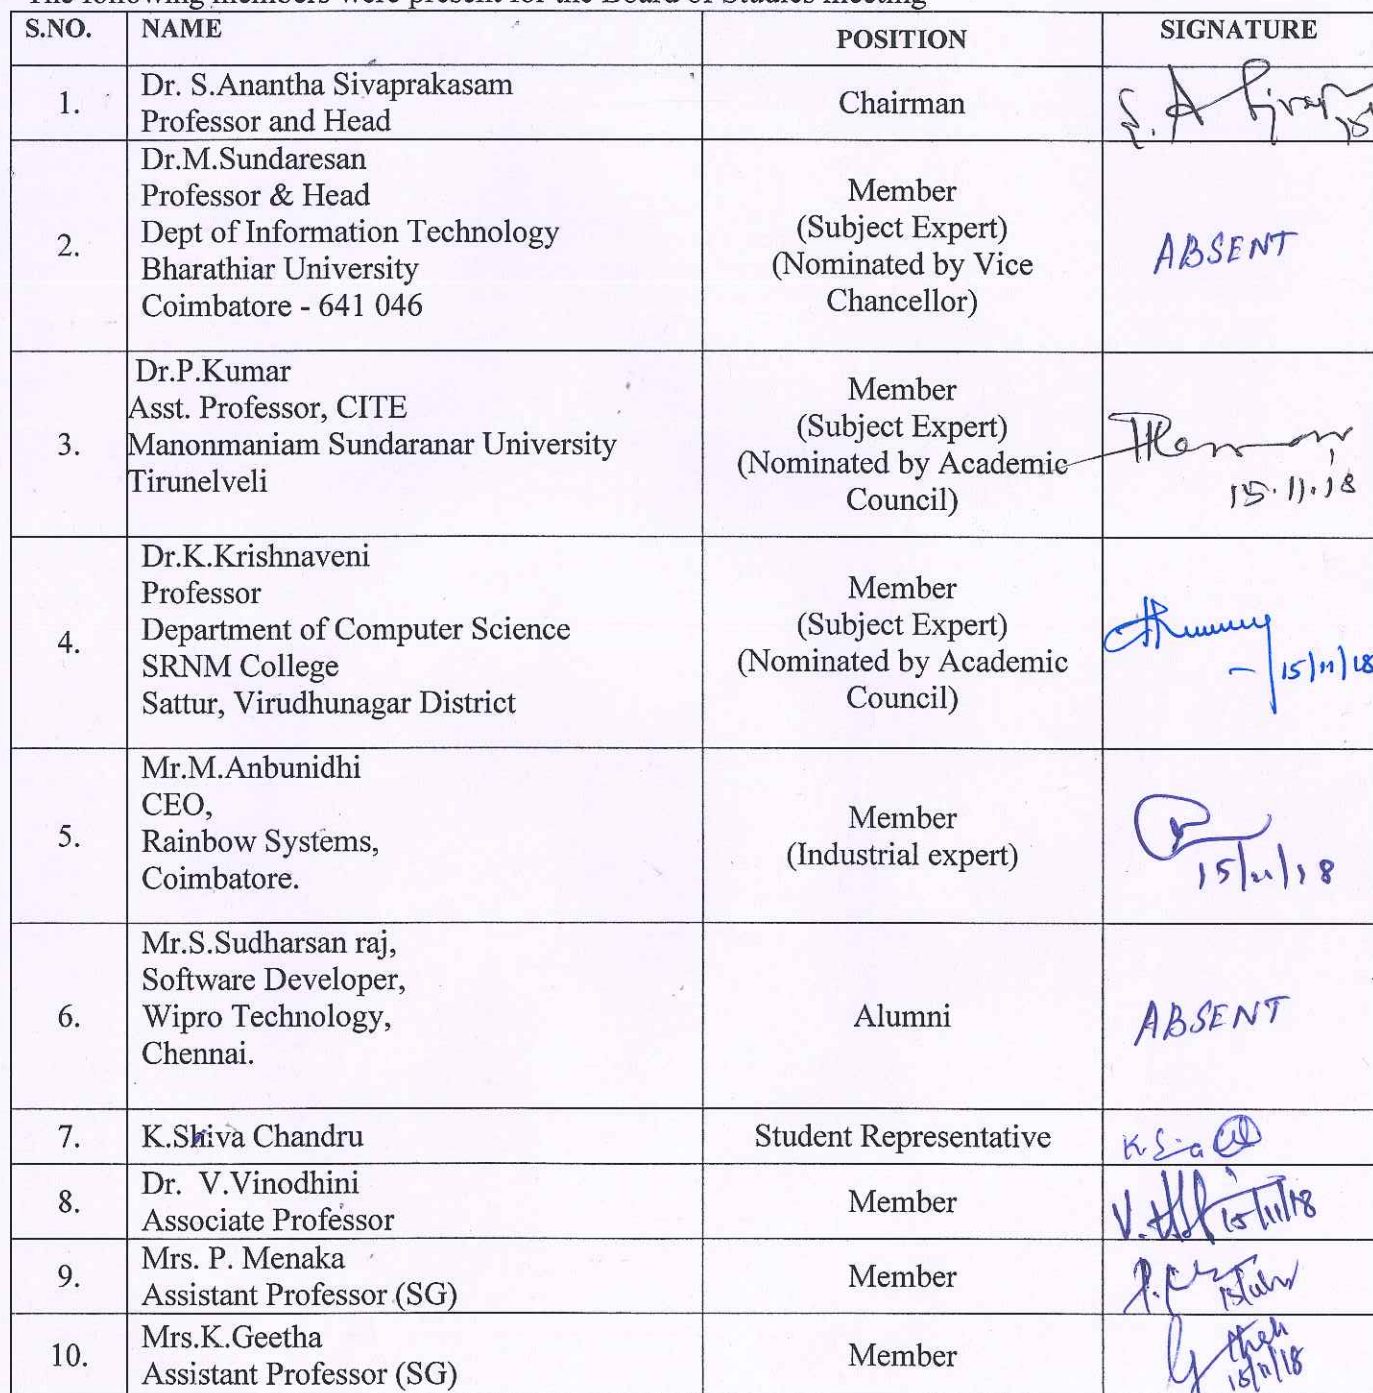 The following members were present for the Board of Studies meeting
S.NO. NAME POSITION SIGNATURE
1. Dr. S.Anantha Sivaprakasam
Professor and Head
Chairman
2. Dr.M.Sundaresan
Professor & Head
Dept of Information Technology
Bharathiar University
Coimbatore - 641 046
Member
(Subject Expert)
(Nominated by Vice
Chancellor)
ABSENT
3. Dr.P.Kumar
Asst. Professor, CITE
Manonmaniam Sundaranar University
Tirunelveli
Member
(Subject Expert)
(Nominated by Academic
Council)
15.11.18
4. Dr.K.Krishnaveni
Professor
Department of Computer Science
SRNM College
Sattur, Virudhunagar District
Member
(Subject Expert)
(Nominated by Academic
Council)
15/11/18
5. Mr.M.Anbunidhi
CEO,
Rainbow Systems,
Coimbatore.
Member
(Industrial expert)
15/11/18
6. Mr.S.Sudharsan raj,
Software Developer,
Wipro Technology,
Chennai.
Alumni
ABSENT
7. K.Shiva Chandru
Student Representative
8. Dr. V.Vinodhini
Associate Professor
Member
15/11/18
9. Mrs. P. Menaka
Assistant Professor (SG)
Member
10. Mrs.K.Geetha
Assistant Professor (SG)
Member
15/11/18